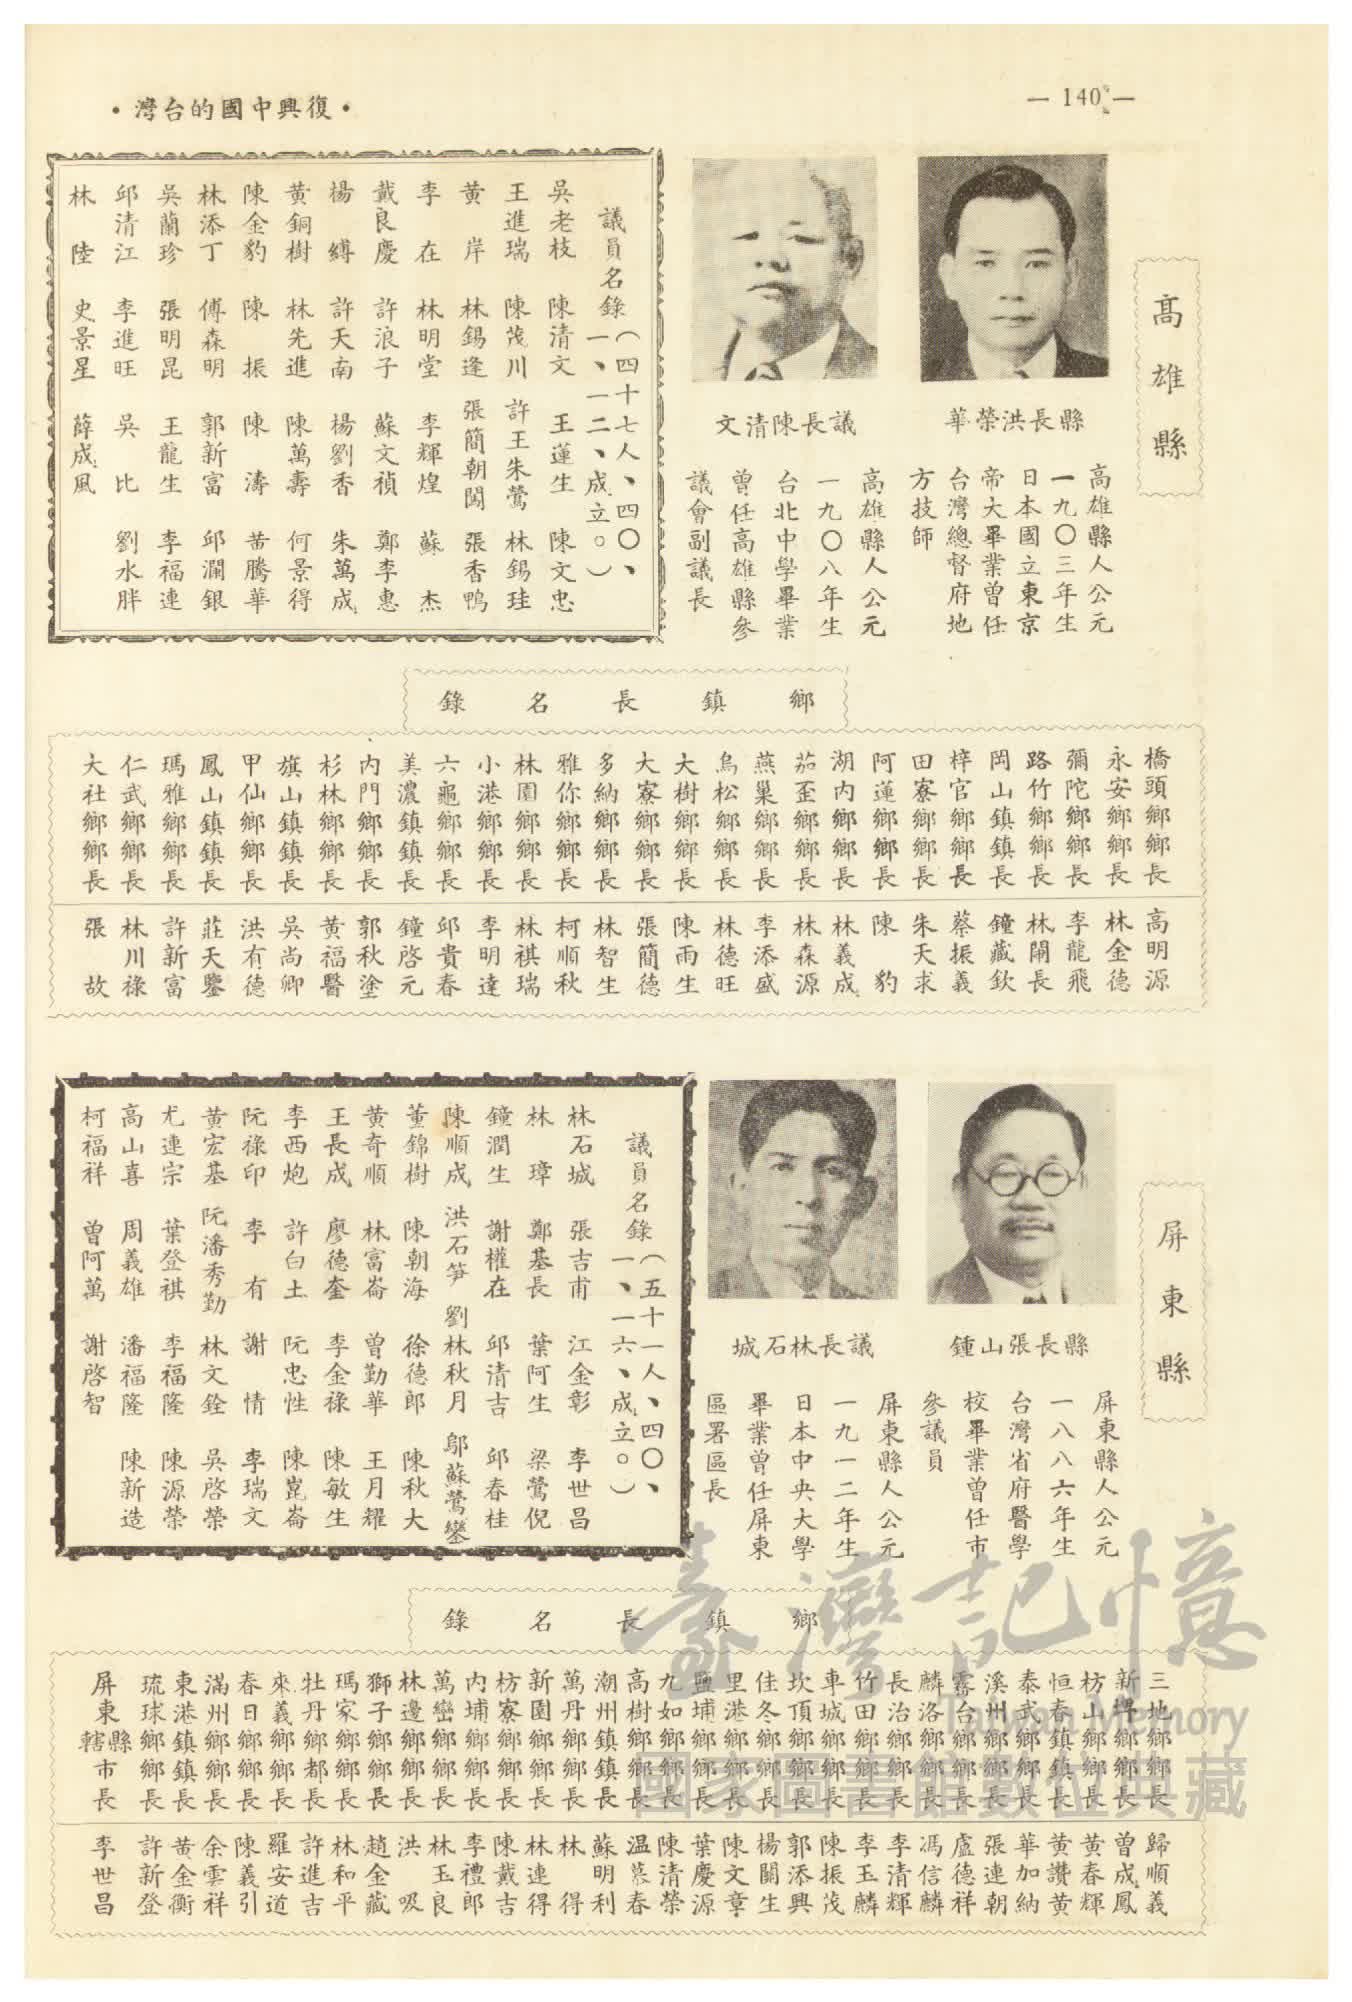 — 140 —
•復興中國的台灣•
高雄縣
縣長洪榮華
高雄縣人公元
一九〇三年生
日本國立東京
帝大畢業曾任
台灣總督府地
方技師
議長陳清文
高雄縣人公元
一九〇八年生
台北中學畢業
曾任高雄縣參
議會副議長
議員名錄(四十七人、四〇、
一、一二、成立。)
吳老枝 陳清文 王蓮生 陳文忠
王進瑞 陳茂川 許王朱鶯 林錫珪
黃岸 林錫逢 張簡朝闖 張香鴨
李在 林明堂 李輝煌 蘇杰
戴良慶 許浪子 蘇文禎 鄭李惠
楊縛 許天南 楊劉香 朱萬成
黃銅樹 林先進 陳萬壽 何景得
陳金豹 陳振 陳濤 黃騰華
林添丁 傅森明 郭新富 邱瀾銀
吳蘭珍 張明昆 王龍生 李福連
邱清江 李進旺 吳比 劉水胖
林陸 史景星 薛成風
鄉鎮長名錄
橋頭鄉鄉長 高明源
永安鄉鄉長 林金德
彌陀鄉鄉長 李龍飛
路竹鄉鄉長 林闊長
岡山鎮鎮長 鐘藏欽
梓官鄉鄉長 蔡振義
田寮鄉鄉長 朱天求
阿蓮鄉鄉長 陳豹
湖內鄉鄉長 林義成
茄萣鄉鄉長 林森源
燕巢鄉鄉長 李添盛
鳥松鄉鄉長 林德旺
大樹鄉鄉長 陳雨生
大寮鄉鄉長 張簡德
多納鄉鄉長 林智生
雅你鄉鄉長 柯順秋
林園鄉鄉長 林祺瑞
小港鄉鄉長 李明達
六龜鄉鄉長 邱貴春
美濃鎮鎮長 鐘啓元
內門鄉鄉長 郭秋塗
杉林鄉鄉長 黃福醫
旗山鎮鎮長 吳尚卿
甲仙鄉鄉長 洪有德
鳳山鎮鎮長 莊天鑒
瑪雅鄉鄉長 許新富
仁武鄉鄉長 林川祿
大社鄉鄉長 張故
屏東縣
縣長張山鍾
屏東縣人公元
一八八六年生
台灣省府醫學
校畢業曾任市
參議員
議長林石城
屏東縣人公元
一九一二年生
日本中央大學
畢業曾任屏東
區署區長
議員名錄(五十一人、四〇、
一、一六、成立。)
林石城 張吉甫 江金彰 李世昌
林璋 鄭基長 葉阿生 梁鶯倪
鐘潤生 謝權在 邱清吉 邱春桂
陳順成 洪石笋 劉林秋月 鄔蘇鶯鑾
董錦樹 陳朝海 徐德郎 陳秋大
黃奇順 林富崙 曾勤華 王月耀
王長成 廖德奎 李金祿 陳敏生
李西炮 許白土 阮忠性 陳崑崙
阮祿印 李有 謝情 李瑞文
黃宏基 阮潘秀勤 林文銓 吳啓榮
尤連宗 葉登祺 李福隆 陳源榮
高山喜 周義雄 潘福隆 陳新造
柯福祥 曾阿萬 謝啓智
鄉鎮長名錄
三地鄉鄉長 歸順義
新埤鄉鄉長 曾成鳳
枋山鄉鄉長 黃春輝
恒春鎮鎮長 黃讚黃
泰武鄉鄉長 華加納
溪州鄉鄉長 張連朝
霧台鄉鄉長 盧德祥
麟洛鄉鄉長 馮信麟
長治鄉鄉長 李清輝
竹田鄉鄉長 李玉麟
車城鄉鄉長 陳振茂
坎頂鄉鄉長 郭添興
佳冬鄉鄉長 楊關生
里港鄉鄉長 陳文章
鹽埔鄉鄉長 葉慶源
九如鄉鄉長 陳清榮
高樹鄉鄉長 温慕春
潮州鎮鎮長 蘇明利
萬丹鄉鄉長 林得
新園鄉鄉長 林連得
枋寮鄉鄉長 陳戴吉
內埔鄉鄉長 李禮郎
萬巒鄉鄉長 林玉良
林邊鄉鄉長 洪吸
獅子鄉鄉長 趙金藏
瑪家鄉鄉長 林和平
牡丹鄉都長 許進吉
來義鄉鄉長 羅安道
春日鄉鄉長 陳義引
滿州鄉鄉長 余雲祥
東港鎮鎮長 黃金衡
琉球鄉鄉長 許新登
屏東縣轄市長 李世昌
臺灣記憶
Taiwan Memory
國家圖書館數位典藏